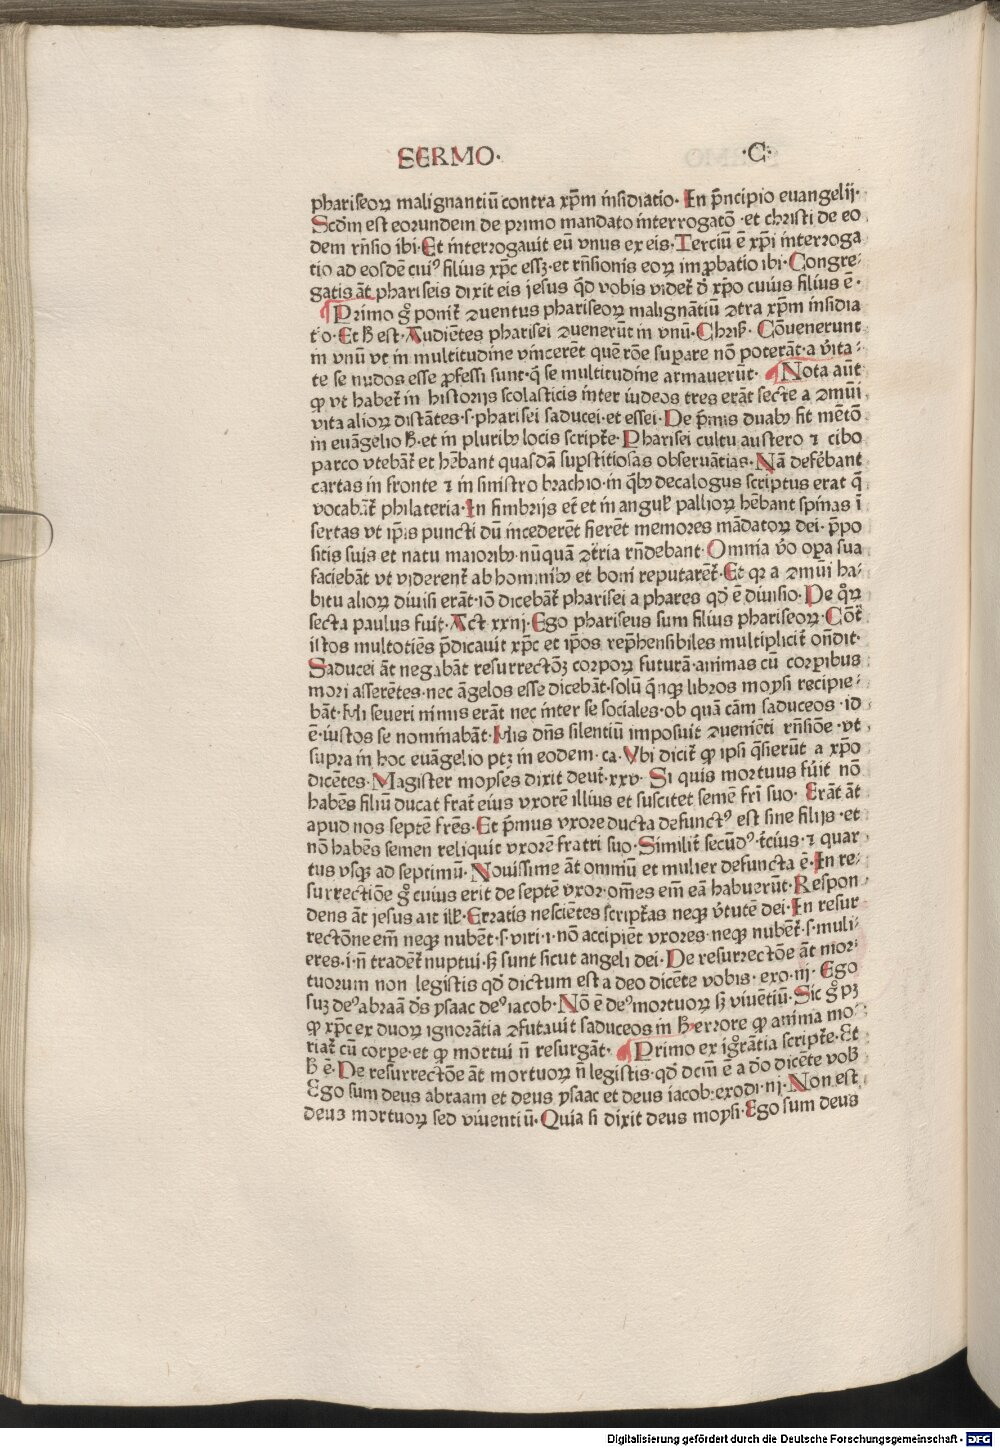 SERMO· ·C·
phariseoꝝ malignantiū contra xp̄m insidiatio· In pͥncipio evangelij·
Scd̄m est eorundem de primo mandato interrogatō ·et christi de eo
dem rn̄sio ibi·Et interrogavit eū vnus ex eis·Terciū ē xp̄i interroga
tio ad eosdē cuiꝰ filius xp̄c essꝫ·et rn̄sionis eoꝝ imꝓbatio ibi·Congre⸗
gatis āt phariseis dixit eis jesus qd̄ vobis videt᷑ d̄ xp̄o cuius filius ē·
Primo gͦ ponit᷑ ꝯventus phariseoꝝ malignātiū ꝯtra xp̄m insidia
tͥo·Et ħ est·Audiētes pharisei ꝯvenerūt in vnū·Chriſ· Cōvenerunt
in vnū vt in multitudine vincerēt quē rōe suꝑare nō poterāt·a v̓ita⸗
te se nudos esse ꝓfessi sunt·q̄ se multitudine armaverūt· Nota aūt
ꝙ vt habet᷑ in historijs scolasticis inter iudeos tres erāt secte a ꝯmūi
vita alioꝝ distātes·s·pharisei saducei·et essei·De pͥmis duabꝰ fit mētō
in euāgelio ħ·et in pluribꝰ locis script᷑e·Pharisei cultu austero ⁊ cibo
parco vtebāt᷑ et hēbant quasdā suꝑstitiosas observātias·Nā deferēbant
cartas in fronte ⁊ in sinistro brachio·in qͥbꝰ decalogus scriptus erat q̄
vocabāt᷑ philateria·In fimbrijs et̄ et in angul̓ pallioꝝ hēbant spinas ī
sertas vt ip̄is puncti dū incederēt fierēt memores mādatoꝝ dei· p̄po
sitis suis et natu maioribꝰ nūquā ꝯtͣria rn̄debant·Omnia v̓o oꝑa sua
faciebāt vt viderent᷑ ab hominibꝰ et boni reputarēt᷑·Et qꝛ a ꝯmūi ha⸗
bitu alioꝝ divisi erāt·iō dicebāt᷑ pharisei a phares qd̓ ē divisio·De qͦꝝ
secta paulus fuit·Act xxiij·Ego phariseus sum filius phariseoꝝ·Cōt᷑
istos multotiēs p̄dicavit xp̄c et ip̄os rep̄hensibiles multiplicit᷑ on̄dit·
Saducei āt negabāt resurrectōꝫ corpoꝝ futurā·animas cū corꝑibus
mori asserētes·nec āgelos esse dicebāt·solū qͥnqꝫ libros moysi recipie⸗
bāt·Hi severi nimis erāt nec inter se sociales·ob quā cām saduceos ·id
ē·iustos se nominabāt·His dn̄s silentiū imposuit ꝯveniēti rn̄siōe ·vt
supra in hoc euāgelio ptꝫ in eodem·ca·Vbi dicit᷑ ꝙ ipsi q̄sierūt a xp̄o
dicētes·Magister moyses dixit deut᷑·xxv· Si quis mortuus fu̓it nō
habēs filiū ducat frat᷑ eius vxorē illius et suscitet semē fr̄i suo· Erāt āt
apud nos septē fr̄es·Et pͥmus vxore ducta defunctꝰ est sine filijs ·et
nō habēs semen reliquit vxorē fratri suo·Similit᷑ secūdꝰ·t᷑cius·⁊ quar
tus vsqꝫ ad septimū·Novissime āt omniū et mulier defuncta ē·In re⸗
surrectiōe gͦ cuius erit de septē vxor·om̄es em̄ eā habuerūt·Respon
dens āt jesus ait ill̓·Erratis nesciētes script᷑as neqꝫ v̓tutē dei·In resur
rectōne em̄ neqꝫ nubēt·s·viri·i·nō accipiēt vxores·neqꝫ nubēt᷑·s·muli⸗
eres·i·n̄ tradēt᷑ nuptui·sꝫ sunt sicut angeli dei·De resurrectōe āt mor⸗
tuorum non legistis qd̓ dictum est a deo dicēte vobis· exo·iij· Ego
suꝫ deꝰ abraā d̓s ysaac deꝰ iacob·Nō ē deꝰ mortuoꝝ sꝫ viventiū·Sic gͦ pꝫ
ꝙ xp̄c ex duoꝝ ignorātia ꝯfutavit saduceos in ħ errore ꝙ anima mo⸗
riat᷑ cū corꝑe·et ꝙ mortui n̄ resurgāt· Primo ex ig̓rātia script᷑e·Et
ħ ē·De resurrectōe āt mortuoꝝ n̄ legistis·qd̓ dc̄m ē a d̓o dicēte vobꝭ
Ego sum deus abraam et deus ysaac et deus iacob·exodi·iij·Non est
deus mortuoꝝ sed viventiū·Quia si dixit deus moysi·Ego sum deus
Digitalisierung gefördert durch die Deutsche Forschungsgemeinschaft - DFG